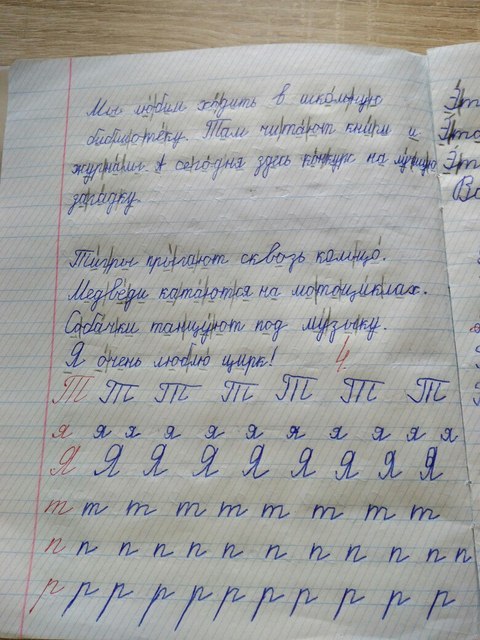 Мы любим ходить в школьную
библиотеку. Там читают книги и
журналы. А сегодня здесь конкурс на лучшую
загадку.
Тигры прыгают сквозь кольцо.
Медведи катаются на мотоциклах.
Собачки танцуют под музыку.
Я очень люблю цирк! 4
Т Т Т Т Т Т Т
я я я я я я я я я я
Я Я Я Я Я Я Я Я Я
т т т т т т т т т
п п п п п п п п п п п
р р р р р р р р р р р
Эт
Это
Эт
Во